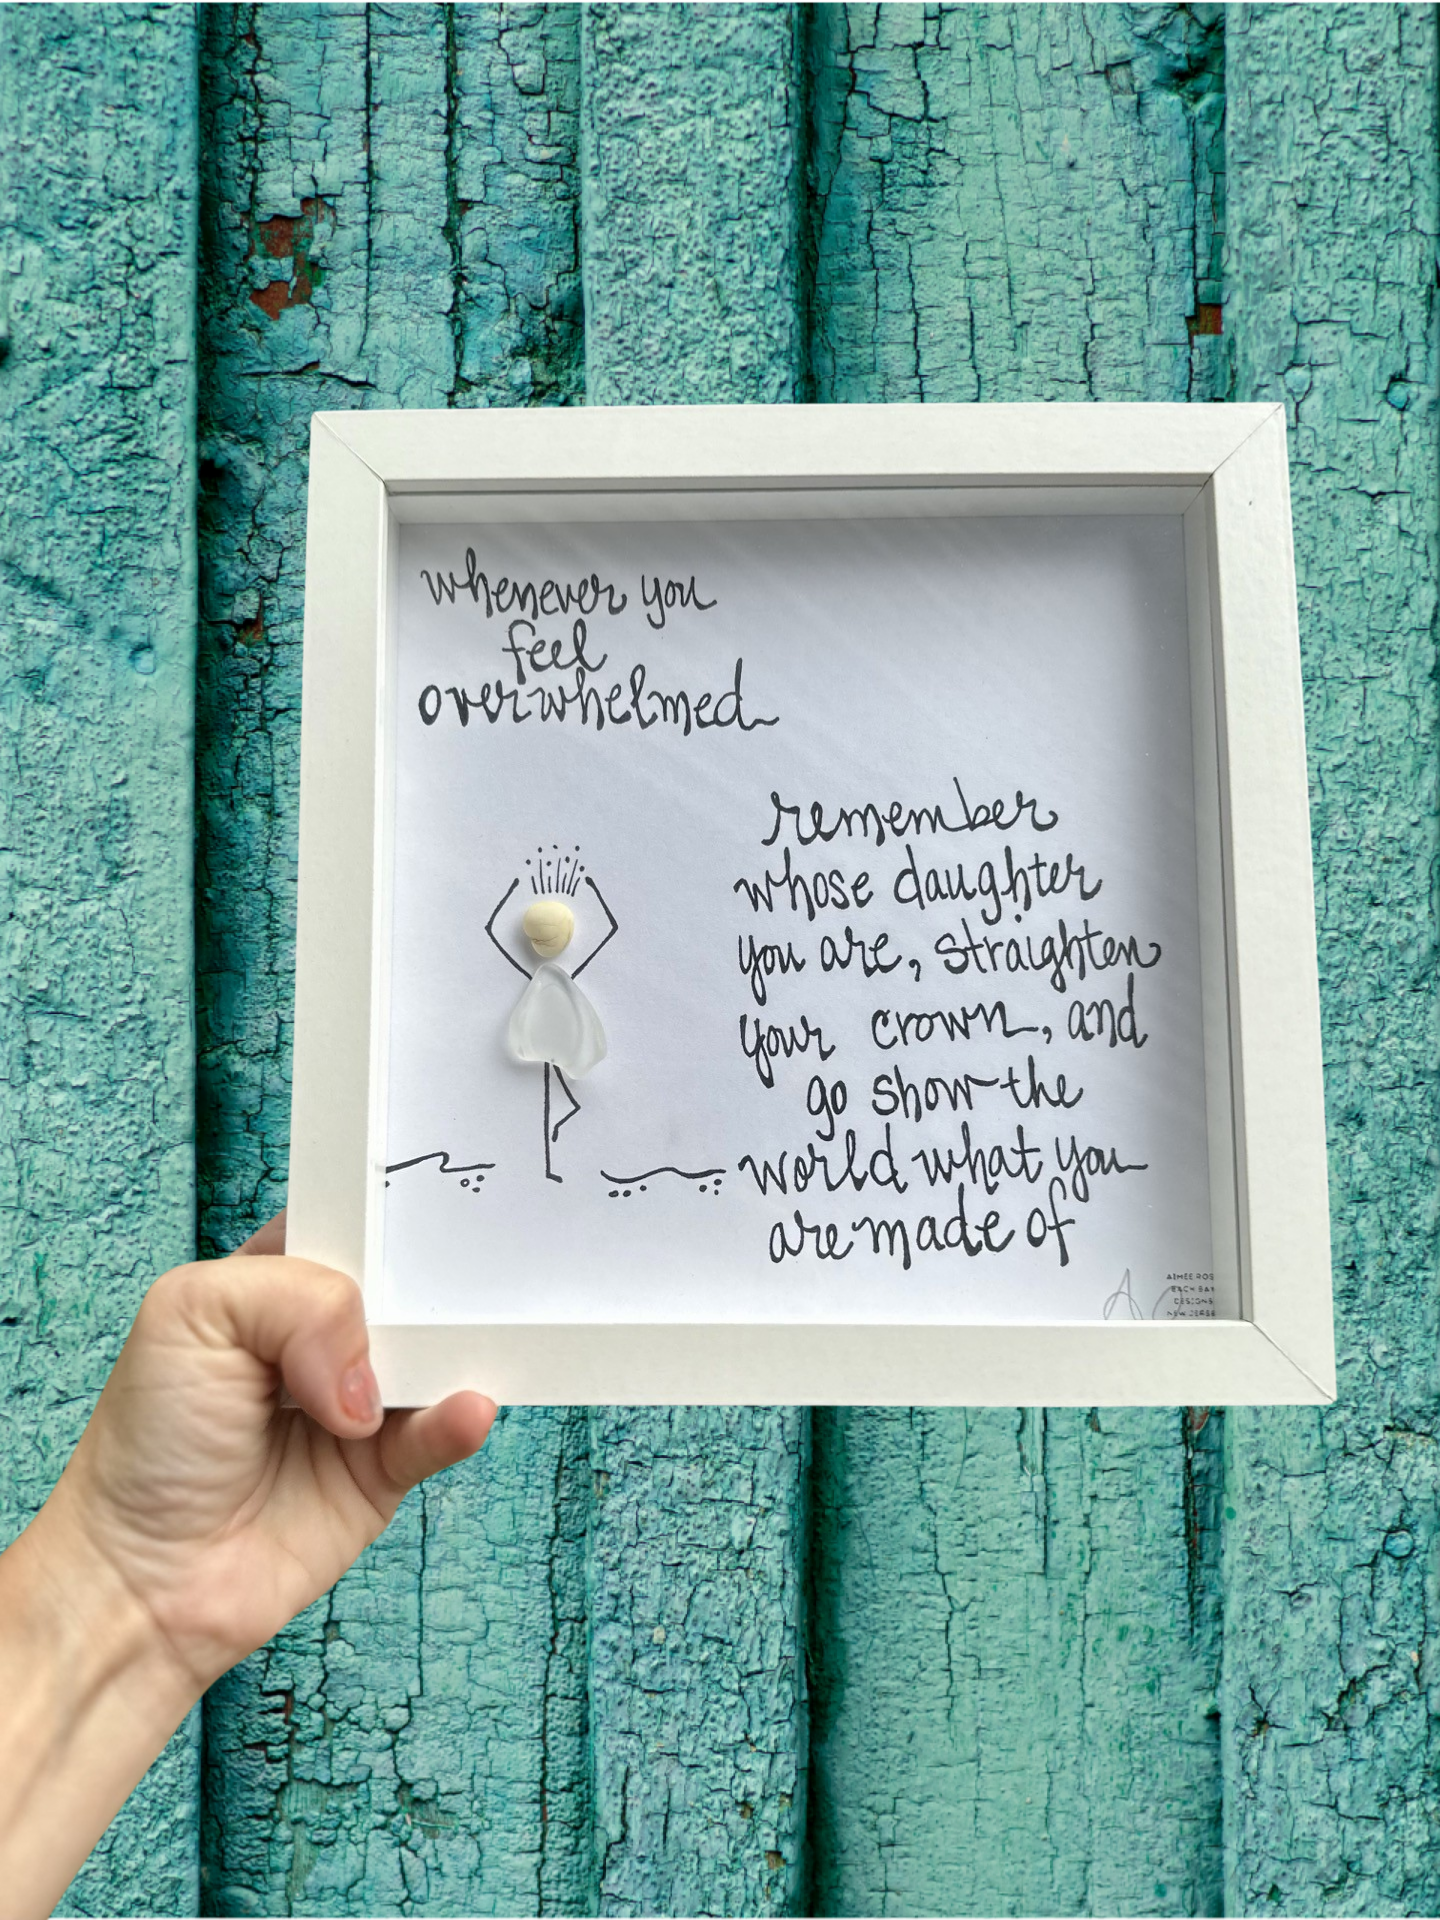 whenever you
feel
overwhelmed
remember
whose daughter
you are, straighten
your crown, and
go show the
world what you
are made of
AIMEE ROS
EACH BAY
DESIGNS
NEW JERSE